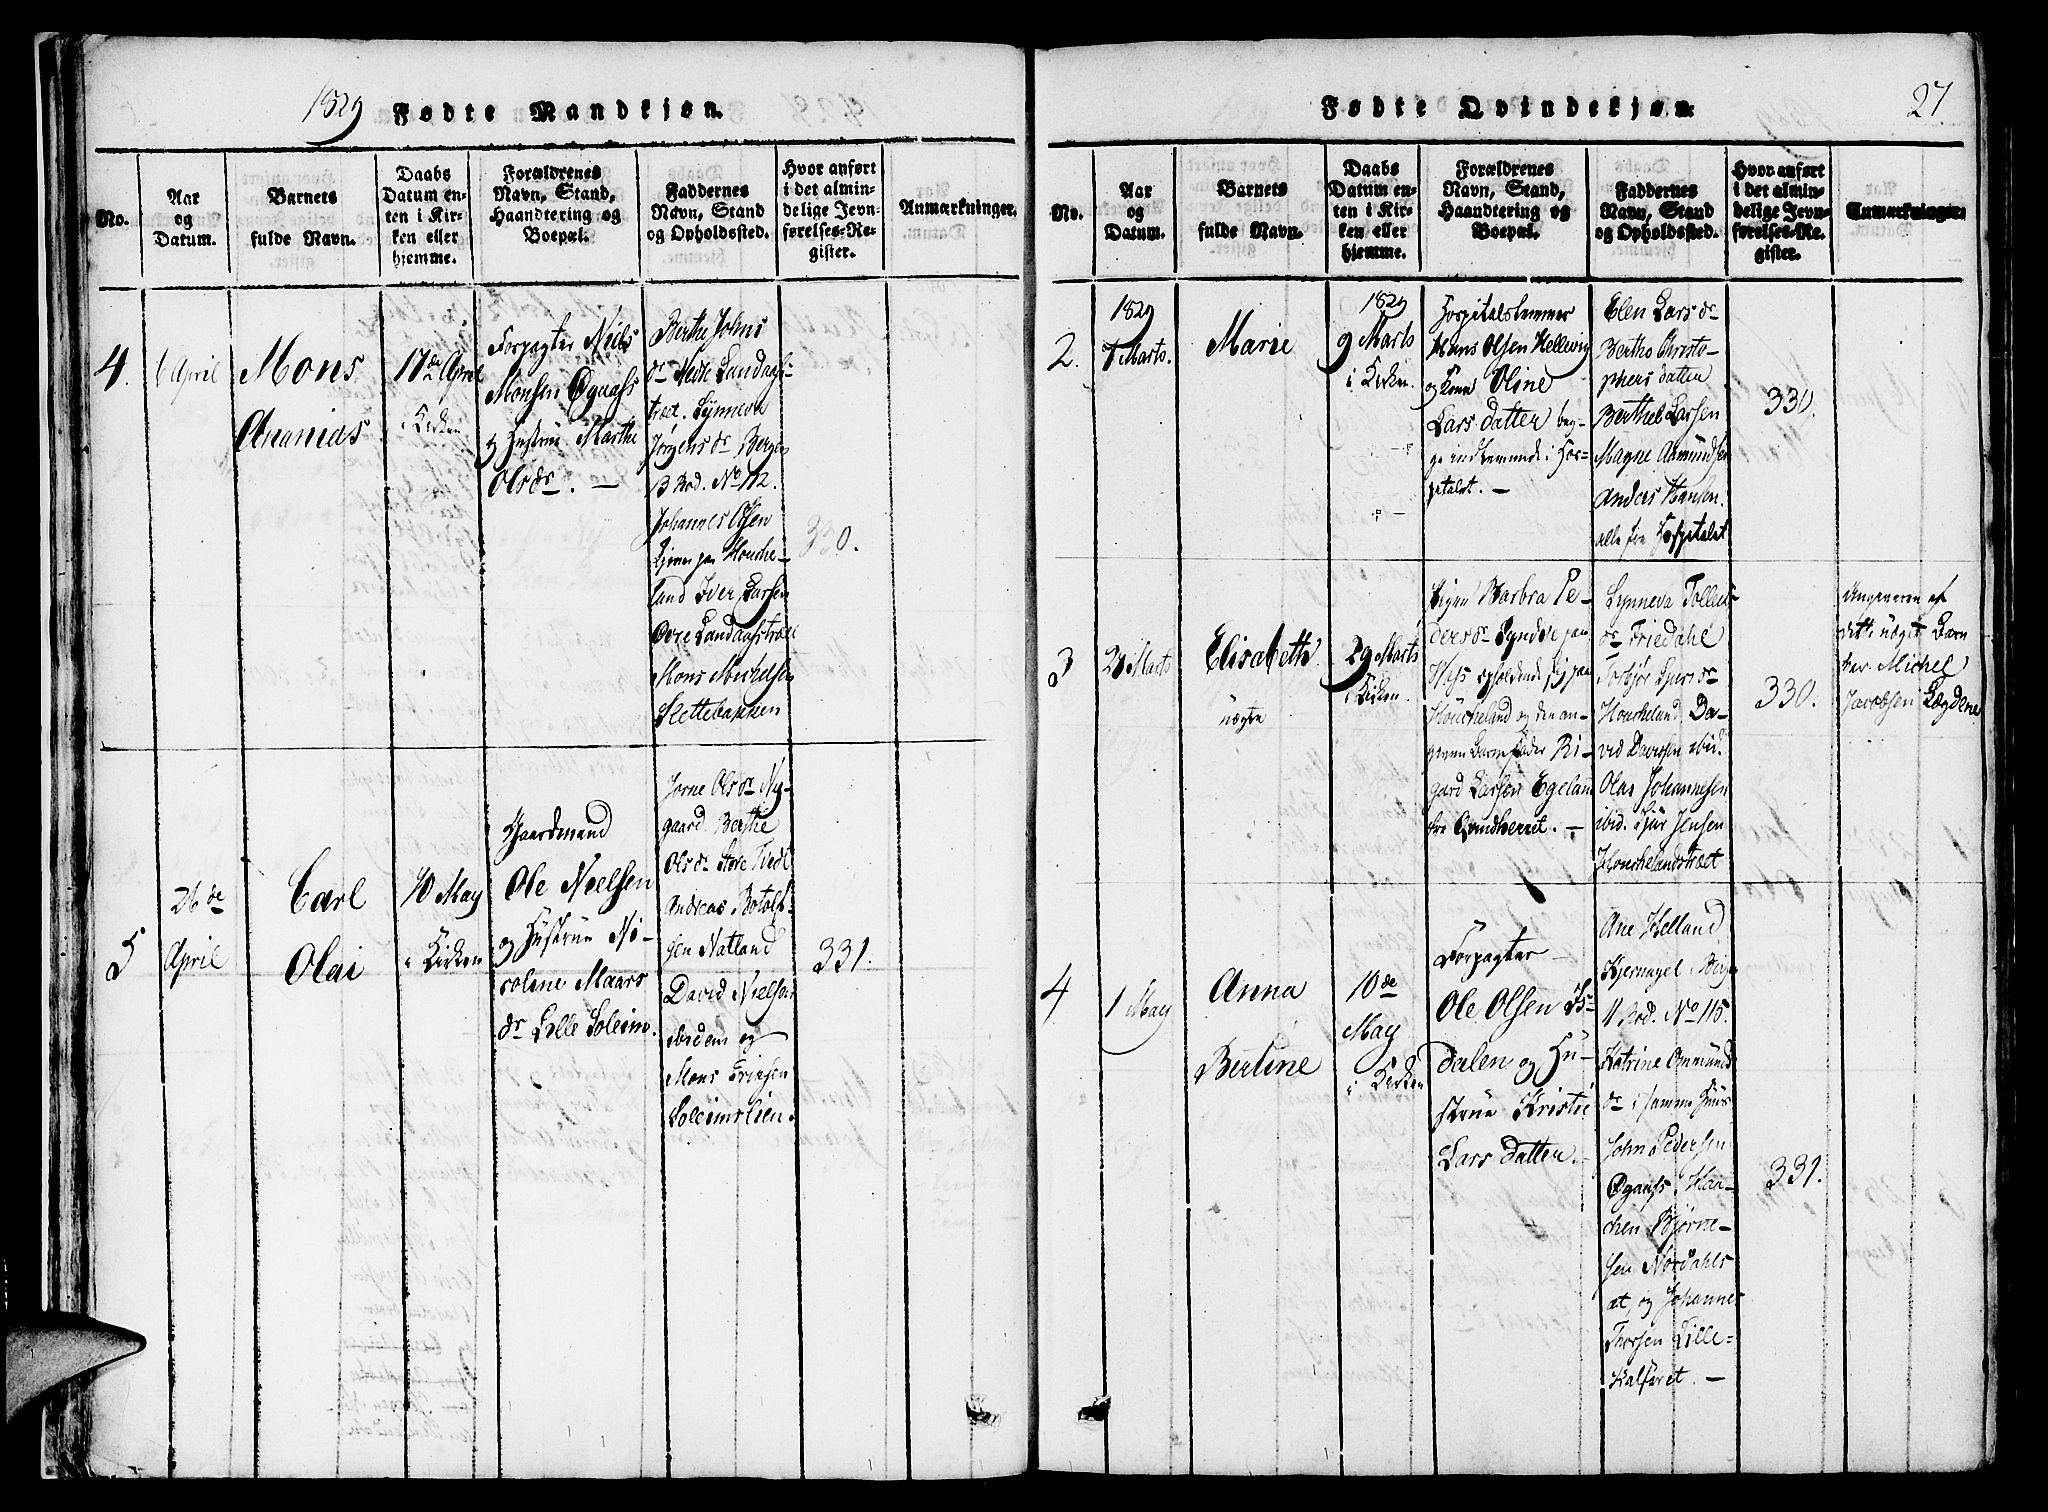 1829 Fødte Mandkjøn.
No.
Aar
og
Datum.
Barnets
fulde Navn.
Daabs
Datum en-
ten i Kir-
ken eller
hjemme.
Forældrenes
Navn, Stand,
Haandtering og
Boepæl.
Faddernes
Navn, Stand
og Opholdssted.
Hvor anført
i det almin-
delige Jevn-
førelses-Re-
gister.
Anmærkninger.
4.
6 April
Mons
Ananias
17de April
i Kirken
Forpagter Niels
Monsen Øgaass
og Hustrue Marthe
Olsdr. —
Berthe Johns
dr Nedre Landaas-
træet. Synneva
Jørgensdr Bergen
13 Rod. No 112.
Johannes Olsen
Houche-
land Iver Larsen
Øvre Landaastræet
Mons Michelsen
Slettebakken
330.
5
26de
April
Carl
Olai
10 May
i Kirken
Gaardmand
Ole Nielsen
og Hustrue Ni-
coline Maars
dr Lille Soleim.
Jorne Olsdr Ny-
gaard. Berthe
Olsdr Store Tvedt
Andreas Botolf-
sen Natland
David Nielsen
ibidem og
Mons
Soleimslien.
331.
Fødte Qvindekjøn. 27
No.
Aar
og
Datum.
Barnets
fulde Navn.
Daabs
Datum en-
ten i Kir-
ken eller
hjemme.
Forældrenes
Navn, Stand,
Haandtering og
Boepæl.
Faddernes
Navn, Stand
og Opholdssted.
Hvor anført
i det almin-
delige Jevn-
førelses-Re-
gister.
Anmærkninger.
2.
1829
7 Marts.
Marie
1829
9 Marts
i Kirken.
Hospitalslemmer
Hans Olsen Hellevig
og Kone Oline
Lars datter beg-
ge indlemmede i Hos-
pitalet. —
Elen Larsdr
Berthe Christo-
phers datter
Berthel Larsen
Magne Aamundsen
Anders Hansen.
alle fra Hospitalet
330.
3
21 Marts
Elisabeth
uægte
29 Marts
i Kirken.
Pigen Barbra Pe-
dersdr Syndve paa
opholdende sig paa
Houcheland og den an-
given Barnefader Ri-
gard Larsen Egeland
fra Qvindherret. —
Synneva Tollefs-
dr Friedahl
Torbjør Sjursdr
Houcheland Da-
vid Davidsen ibid.
Olai Johannesen
ibid. Sjur Jensen
Houchelandstræet
330.
Angiveren af
dette uægte Barn
har Michel
Jacobsen Lægdene
4
1 May
Anna
Bertine
10de
May
i Kirken
Forpagter
Ole Olsen Is-
dalen og Hu-
strue Kristie
Lars datter. —
Ane Helland
Kjernagel i Bergen
11 Rod. No 115.
Katrine Ommund
dr i samme Huus
John Pedersen
Øgaass, Haa-
chen Bjørne-
sen Nordahls
æt, og Johannes
Thorsen Lille-
Kalfaret. —
331.